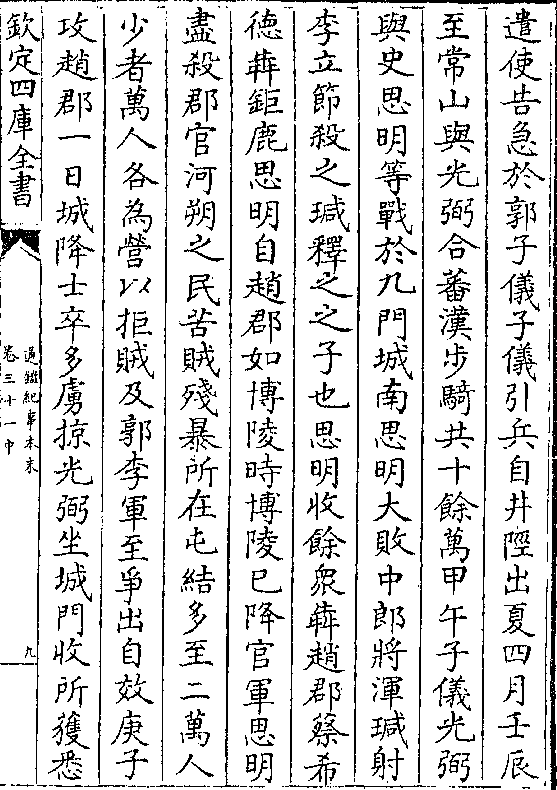 遣使告急於郭子儀子儀引兵自井陘出夏四月壬辰
至常山與光弼合蕃漢步騎共十餘萬甲午子儀光弼
與史思明等戰於九門城南思明大敗中郎將渾瑊射
李立節殺之瑊釋之之子也思明收餘衆犇趙郡蔡希
德犇鉅鹿思明自趙郡如博陵時博陵已降官軍思明
盡殺郡官河朔之民苦賊殘暴所在屯結多至二萬人
少者萬人各為營以拒賊及郭李軍至爭出自效庚子
攻趙郡一日城降士卒多虜掠光弼坐城門收所獲悉
欽定四庫全書
通鑑紀事本末
卷三十一中
九